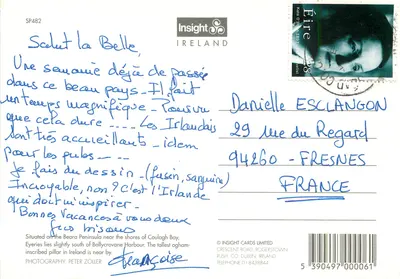 SP482
Insight
IRELAND
Éire
Salut la Belle,
Une semaine déjà de passée
dans ce beau pays. Il fait
un temps magnifique. Pourvu
que cela dure .... Les Irlandais
sont très accueillants - idem
pour les pubs ---
Je fais du dessin - (fusin, sanguine)
Incroyable, non ? C'est l'Irlande
qui doit m'inspirer -
Bonnes Vacances à vous deux
Gros bisous
Françoise
Danielle ESCLANGON
29 rue du Regard
94260 - FRESNES
FRANCE
Situated on the Beara Peninsula near the shores of Coulagh Bay,
Eyeries lies slightly south of Ballycrovane Harbour. The tallest ogham
inscribed pillar in Ireland is near by.
PHOTOGRAPHY: PETER ZOLLER
© INSIGHT CARDS LIMITED
5 390497 000061